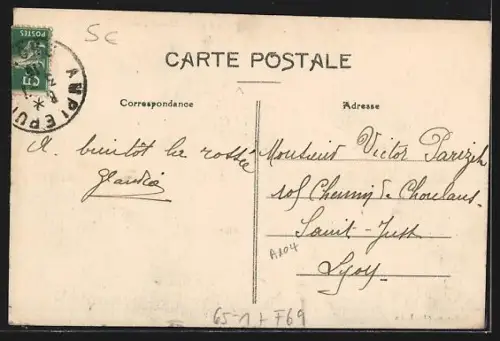 5c
POSTES
5c
AMPLEPUIS
CARTE POSTALE
Correspondance
Adresse
A bientôt la rossée
Monsieur Victor Parizet
105 Chemin de Choulans
Saint-Just
A204
Lyon
65-1+ F69